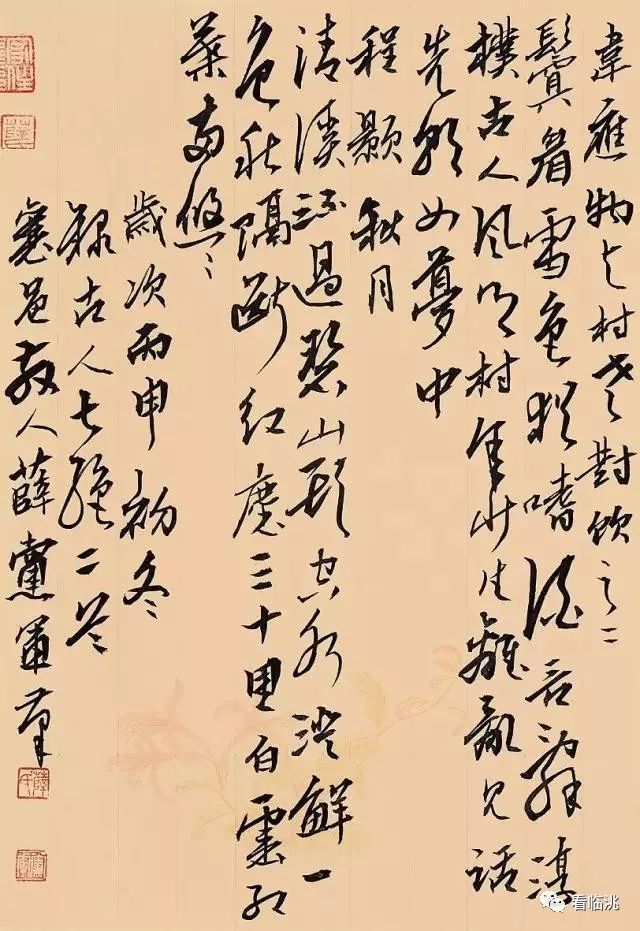 韋應物与村老對飲之二
鬢眉雪色猶嗜酒言辭淳
樸古人風鄉村年少生離亂見話
先朝如夢中
程顥 秋月
清溪流過碧山頭空水澄鮮一
色秋隔斷紅塵三十里白雲紅
葉両悠々
歲次丙申初冬
録古人七絕二首
襄邑散人薛黨軍
看临洮